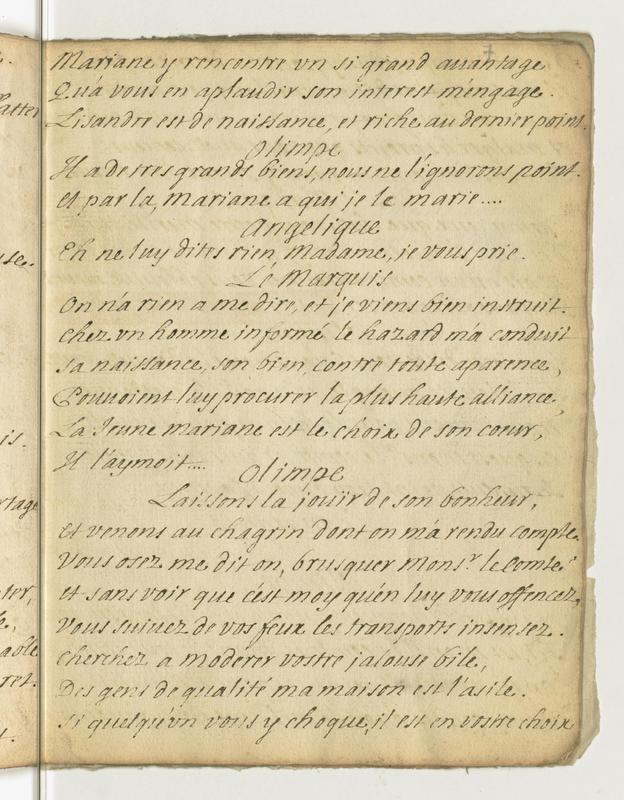 Mariane y rencontre vn si grand auantage
Qu'a vous en aplaudir son interest m'engage.
Lisandre est de naissance, et riche au dernier point.
Olimpe
Il a de tres grands biens, nous ne l'ignorons point.
et par la, Mariane a qui je le marie....
Angelique
Eh ne luy dites rien, Madame, je vous prie.
Le Marquis
On n'a rien a me dire, et je viens bien instruit.
chez vn homme informé le hazard m'a conduit
sa naissance, son bien, contre toute aparence,
Pouuoient luy procurer la plus haute alliance,
La Jeune mariane est le choix de son coeur,
Il l'aymoit....
Olimpe
Laissons la joüir de son bonheur,
et venons au chagrin dont on m'a rendu compte.
Vous osez me dit on, brusquer Monsr. le Comte?
et sans voir que c'est moy qu'en luy vous offencez,
Vous suiuez de vos feux les transports insensez.
cherchez a moderer vostre jalouse bile,
Des gens de qualité ma maison est l'asile.
si quelqu'vn vous y choque, il est en vostre choix
latter
use.
is.
rtage
ter,
e,
able
ret.
t.